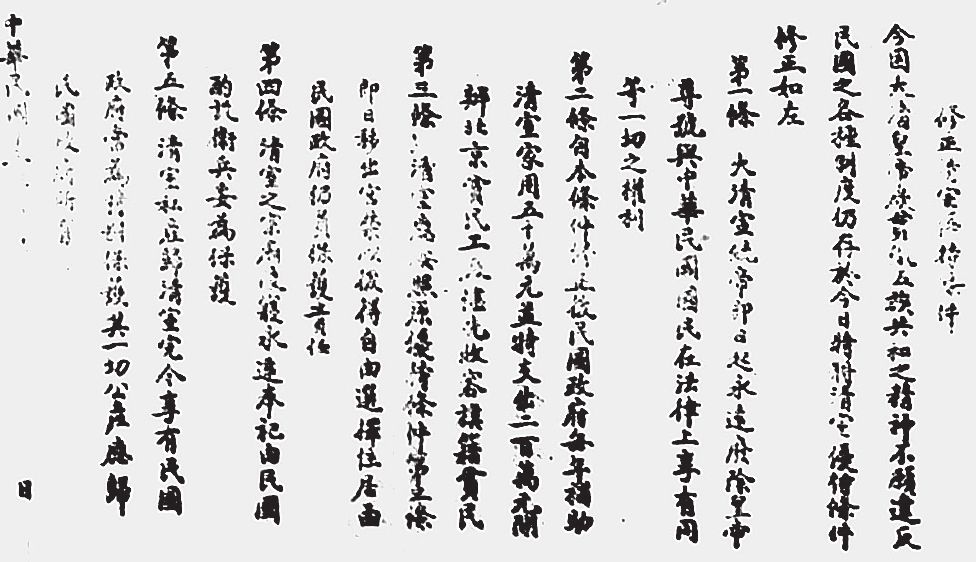 修正清室優待條件
今因大清皇帝欲貫徹五族共和之精神不願違反
民國之各種制度仍存於今日特將清室優待條件
修正如左
第一條 大清宣統帝即日起永遠廢除皇帝
尊號與中華民國國民在法律上享有同
等一切之權利
第二條自本條件修正後民國政府每年補助
清室家用五十萬元並特支出二百萬元開
辦北京貧民工廠儘先收容旗籍貧民
第三條 清室應按照原優待條件第三條
即日移出宮禁以後得自由選擇住居西
民國政府仍負保護責任
第四條 清室之宗廟陵寢永遠奉祀由民國
酌設衛兵妥為保護
第五條 清室私產歸清室完全享有民國
政府當為特別保護其一切公產應歸
民國政府所有
中華民國 日